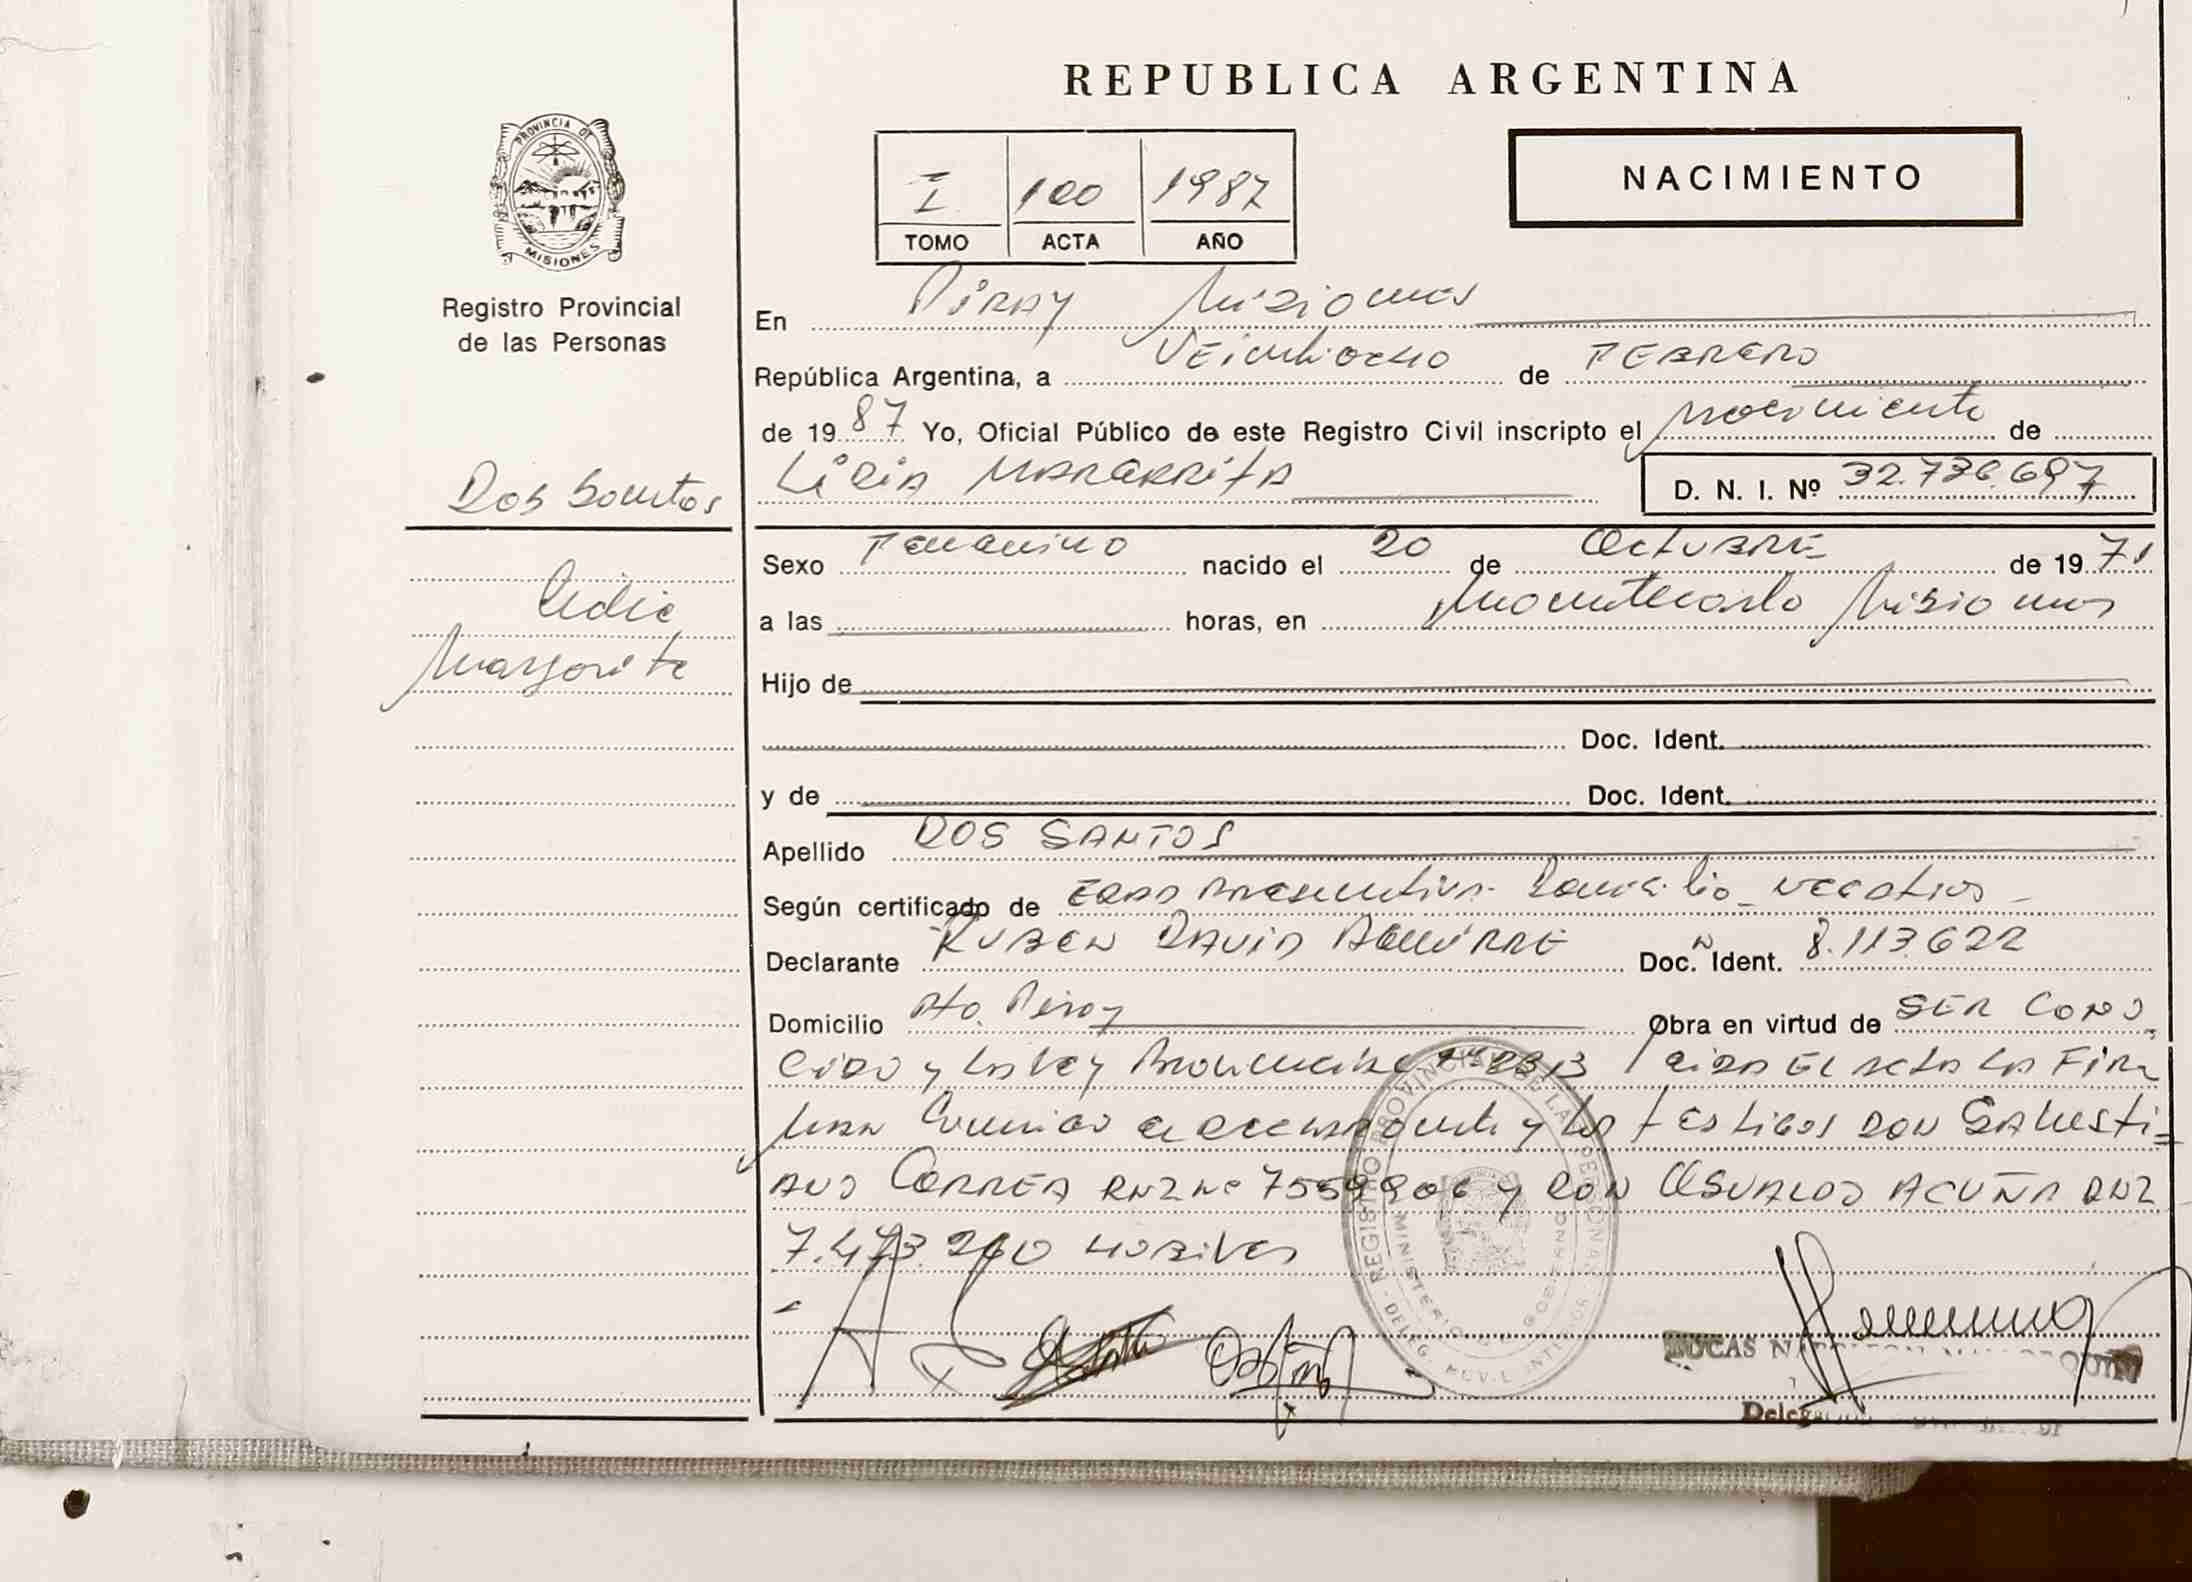 REPUBLICA ARGENTINA
PROVINCIA DE
MISIONES
Registro Provincial
de las Personas
I 100 1987
TOMO ACTA AÑO
NACIMIENTO
En Piray Misiones
República Argentina, a Veintiocho de FEBRERO
de 1987 Yo, Oficial Público de este Registro Civil inscripto el nacimiento de
LiDiA MARGARITA D. N. I. Nº 32.736.697
Dos Santos
Lidia
Margarita
Sexo Femenino nacido el 20 de OCTUBRE de 1971
a las horas, en Montecarlo Misiones
Hijo de
Doc. Ident.
y de Doc. Ident.
Apellido DOS SANTOS
Según certificado de EDAD PRESUNTIVA Domicilio NEGATIVO
Declarante RUBEN DAVID AGUIRRE Doc. Ident. 8.113.622
Domicilio Pto. Piray Obra en virtud de SER CONO
CIDO y LA LEY Provincial Leida EL ACTA LA FIR
MAN Conmigo el declarante y los TESTIGOS DON SALUSTI=
ANO CORREA DNI Nº 7559906 y DON OSVALDO ACUÑA DNI
7.473.260 HOBILES
REGISTRO PROVINCIAL DE LAS PERSONAS
MINISTERIO DE GOBIERNO
LUCAS
Deleg